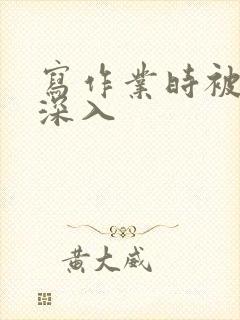 寫作業時被
深入
黃大威